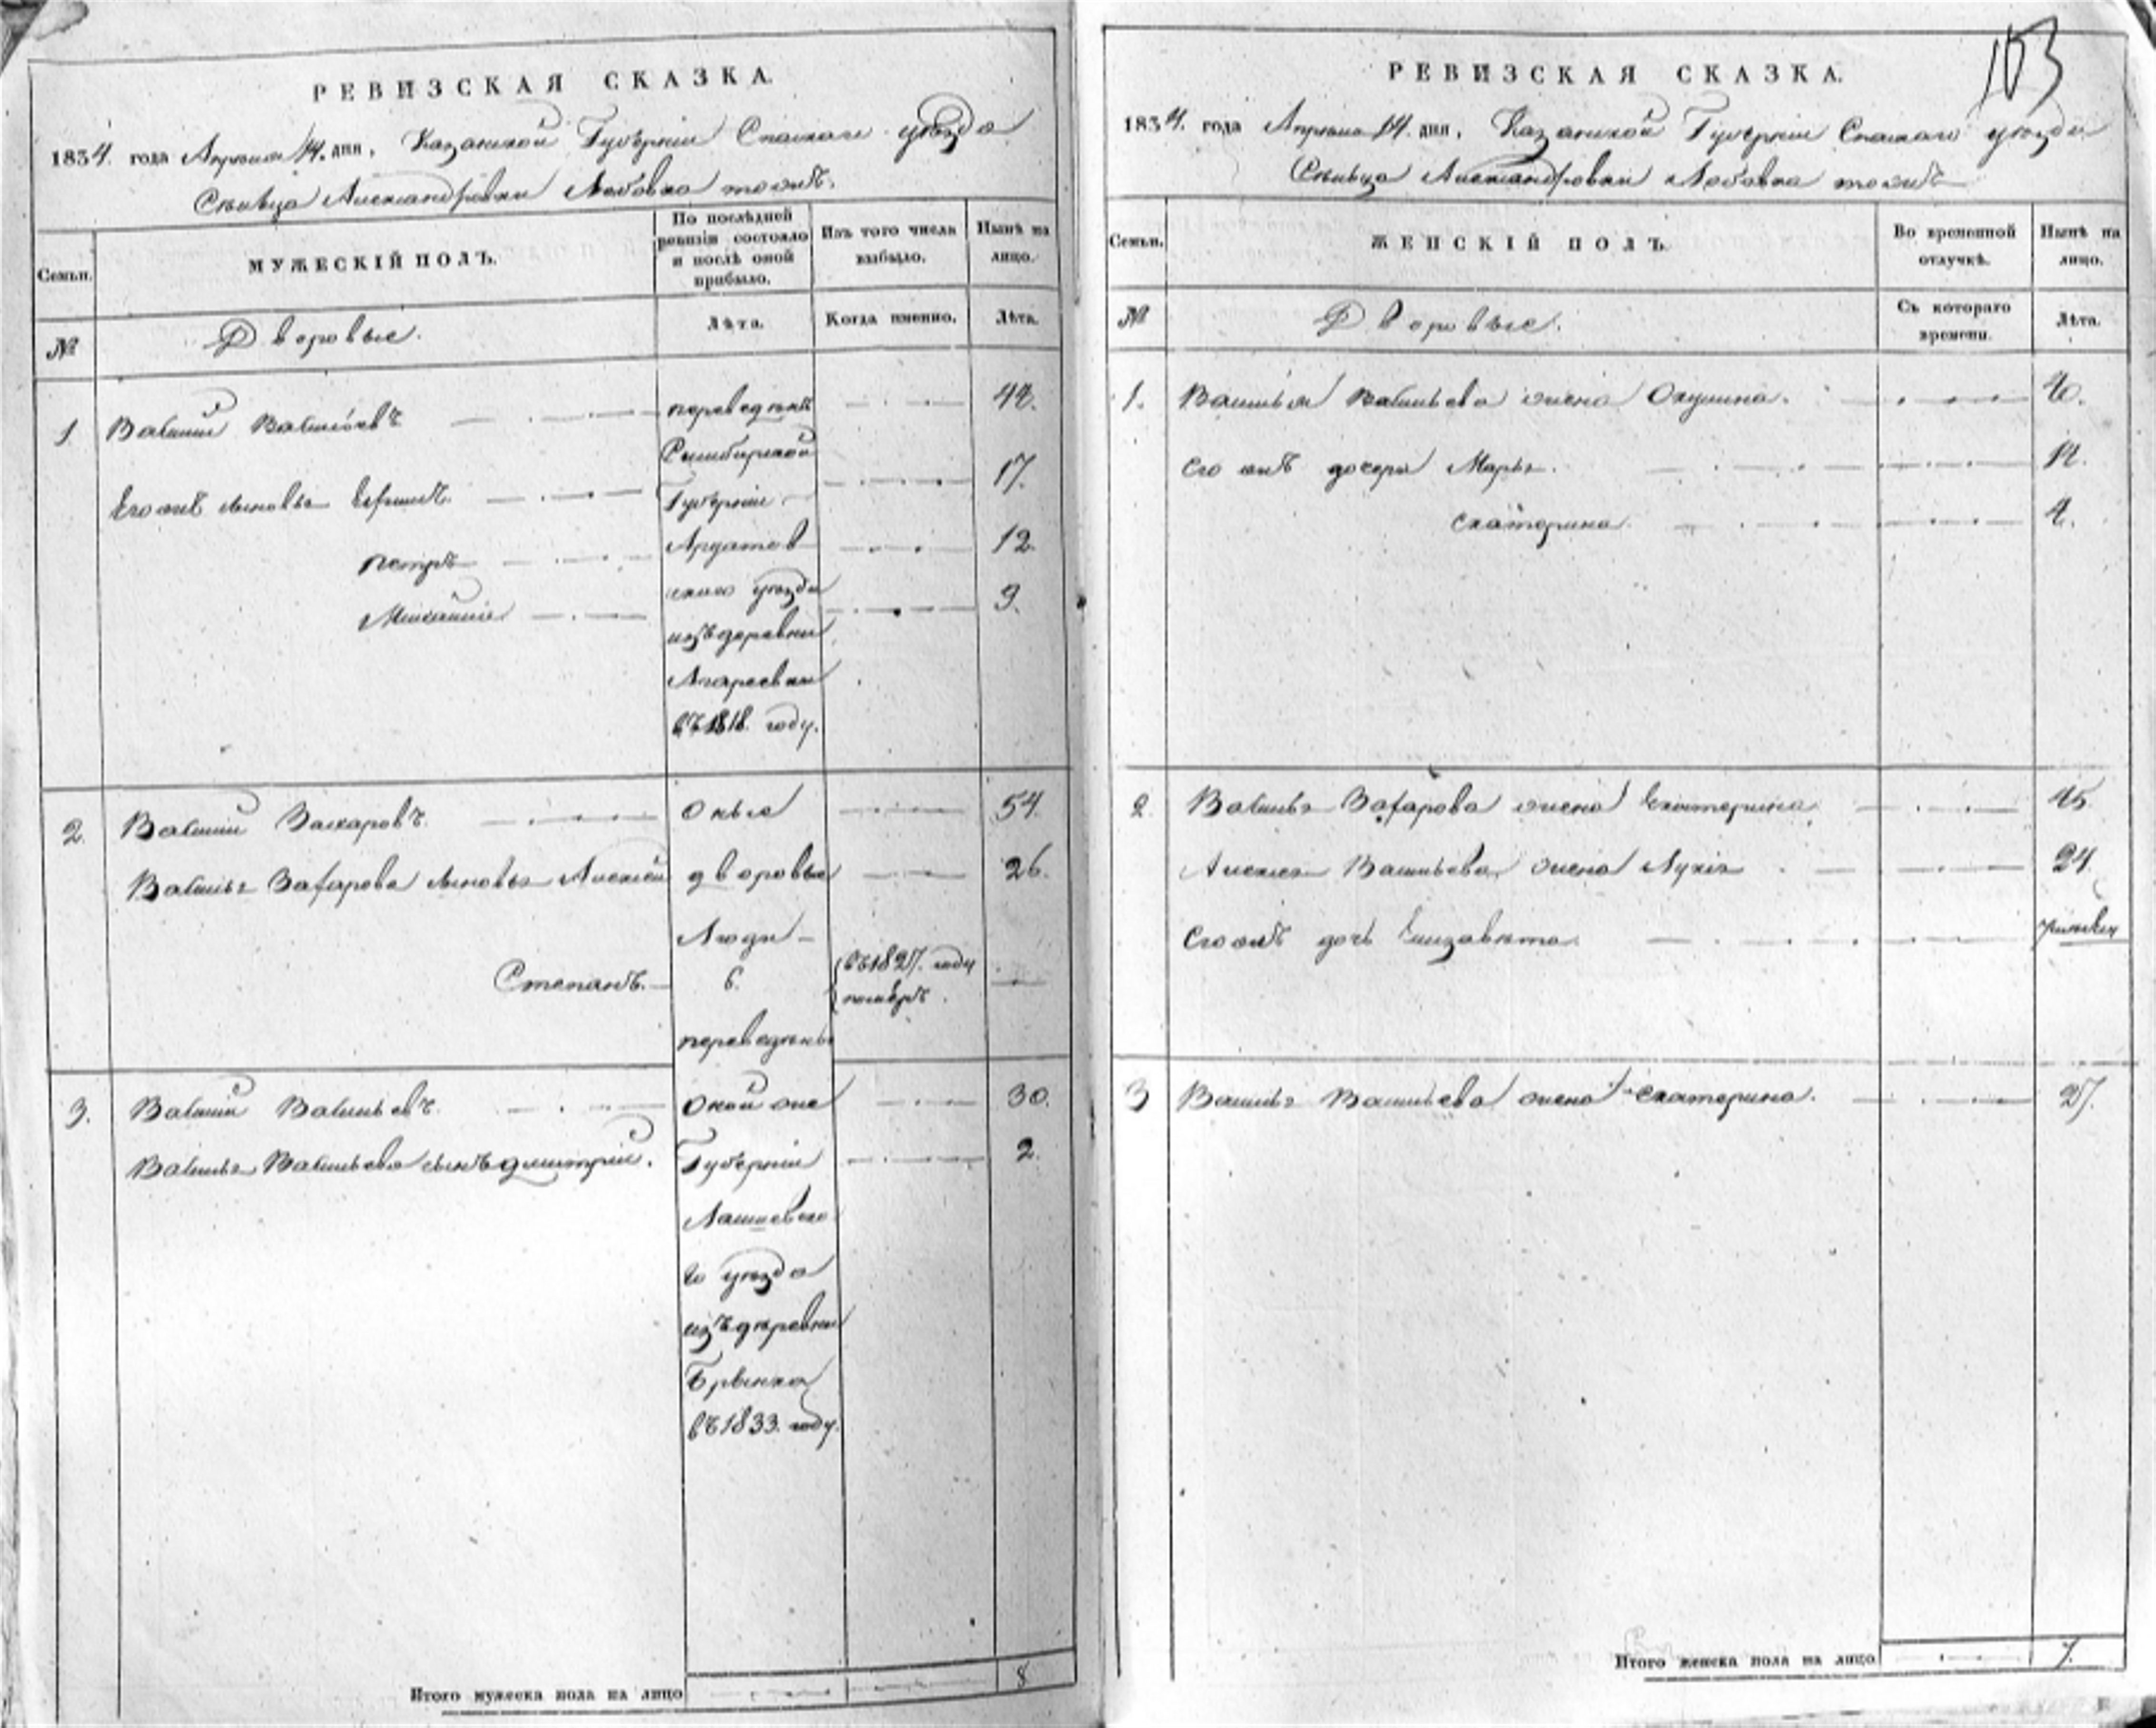 РЕВИЗСКАЯ СКАЗКА.
1834. года Апреля 14. дня, Казанской Губернии Спаскаго уезда
Сельца Александровки Лобовка тожъ.
Семьи.
МУЖЕСКІЙ ПОЛЪ.
По послѣдней ревизіи состояло и послѣ оной прибыло.
Изъ того числа выбыло.
Нынѣ на лицо.
№
Дворовые.
Лѣта.
Когда именно.
Лѣта.
1 Василий Васильевъ 42.
Его жъ сыновья Ефимъ 17.
Петръ 12.
Михайло 9.
переведены
Симбирской
Губернии
Ардатов
скаго уезда
изъ деревни
в 1818. году.
2. Василий Захаровъ 54.
Василья Захарова сыновья Алексей 26.
Степанъ. 6. въ 1827. году
3. Василий Васильевъ 30.
Василья Васильева сынъ Дмитрий. 2.
Оные
дворовые
Люди
переведены
Оной же
Губернии
Лаишевска
го уезда
изъ деревни
въ 1833. году.
Итого мужеска пола на лицо 8
103
РЕВИЗСКАЯ СКАЗКА.
1834. года Апреля 14. дня, Казанской Губернии Спаскаго уезда
Сельца Александровки Лобовка тожъ
Семьи.
ЖЕНСКІЙ ПОЛЪ.
Во временной отлучкѣ.
Нынѣ на лицо.
№
Дворовые.
Съ котораго времени.
Лѣта.
1. Василья Васильева жена Акулина. 40.
Его жъ дочери Марья. 12.
Екатерина 4.
2. Василья Захарова жена Екатерина 45.
Алексея Васильева жена 24.
Его жъ дочь Елизавета
3 Василья Васильева жена Екатерина. 27.
Итого женска пола на лицо 7.